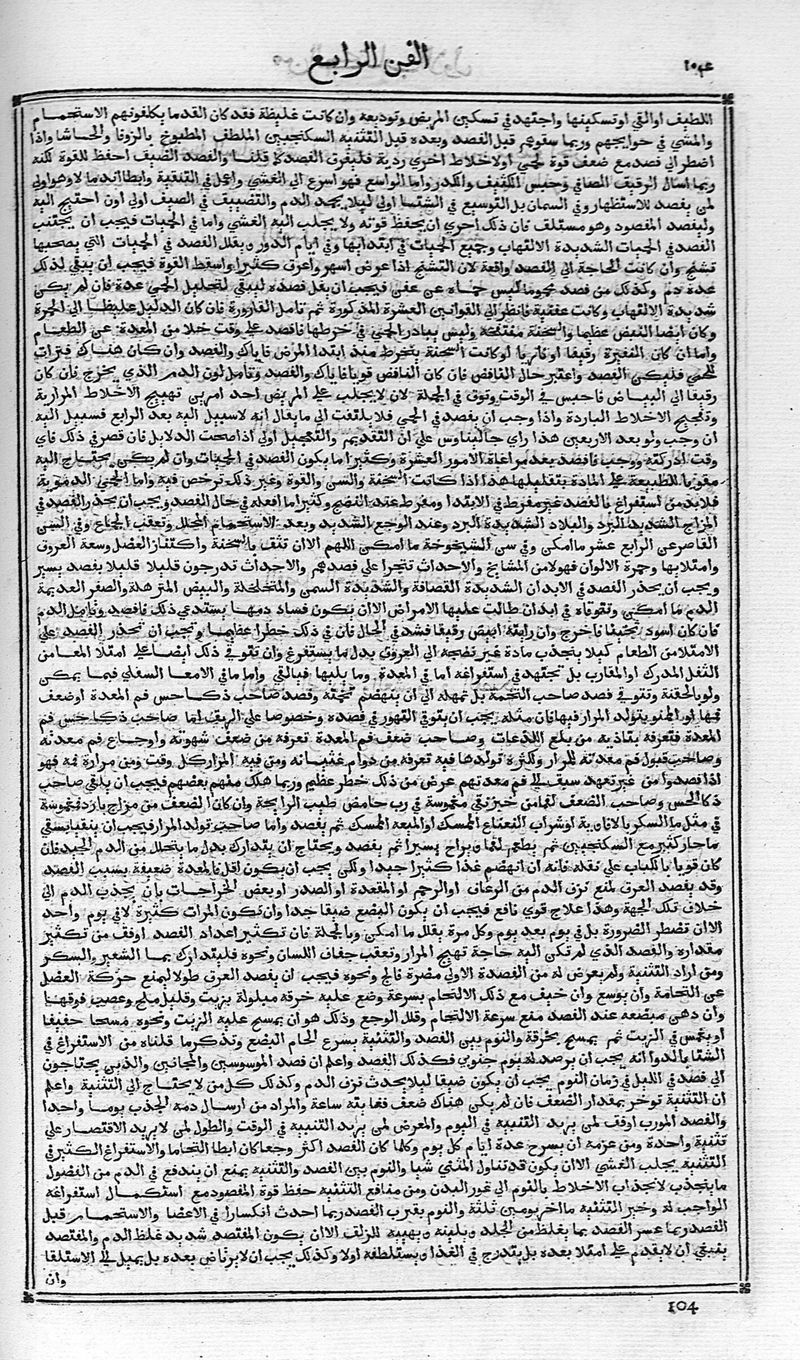 الفن الرابع
١٠٤
اللطيف او القي او تسكينها واجتهد في تسكين المريض وتوديعه وان كانت غليظة فقد كان القدما يكلفونهم الاستحمام
والمشي في حوايجهم وربما سقوهم قبل الفصد وبعده قبل التثنيه السكنجبين الملطف المطبوخ بالزوفا والحاشا واذا
اضطر الي فصد مع ضعف قوة لحمي او لاخلاط اخري ردية فليفرق الفصد كما قلنا والفصد الضيف احفظ للقوة لكنه
ربما اسال الرقيف الصافي وحبس الكثيف والكدر واما الواسع فهو اسرع الي الغشي واعمل في التنقية وابطا اندمالا وهو اولي
لمن يفصد للاستظهار وفي السمان بل التوسيع في الشتا اولي ليلا يجمد الدم والتضييف في الصيف اولي ان احتيج اليه
وليفصد المفصود وهو مستلقف فان ذلك احري ان يحفظ قوته ولا يجلب اليه الغشي واما في الحميات فيجب ان يجتنب
الفصد في الحميات الشديدة الالتهاب وجميع الحميات في ابتدايها وفي ايام الدور ويقلل الفصد في الحميات التي يصحبها
تشنج وان كانت الحاجة الي الفصد واقعة لان التشنج اذا عرض اسهر واعرق كثيرا واسقط القوة فيجب ان يبقي لذلك
عدة دم وكذلك من فصد محموما ليس حماه عن عفن فيجب ان يقل فصده ليبقي لتحليل الحمي عدة فان لم يكن
شديدة الالتهاب وكانت عفنية فانظر الي القوانين العشرة المذكورة ثم تامل القارورة فان كان الدليل غليظا الي الحمرة
وكان ايضا النبض عظيما والسخنة منتفخة وليس يبادر الحمي في خرطها فافصد علي وقت خلا من المعدة عن الطعام
واما ان كان القارورة رقيقا او ناريا او كانت السخنة ينخرط منذ ابتدا المرض فاياك والفصد وان كان هناك فترات
للحمي فليكن الفصد واعتبر حال النافض فان كان النافض قويا فاياك والفصد وتامل لون الدم الذي يخرج فان كان
رقيقا الي البياض فاحبس في الوقت وتوق في الجملة لان لا يجلب علي المريض احد امرين تهييج الاخلاط المرارية
وتفجيج الاخلاط الباردة واذا وجب ان يفصد في الحمي فلا يلتفت الي ما يقال انه لا سبيل اليه بعد الرابع فسبيل اليه
ان وجب ولو بعد الاربعين هذا راي جالينوس علي ان التقديم والتعجيل اولي اذا صحت الدلايل فان قصر في ذلك فاي
وقت ادركته ووجب فافصد بعد مراعاة الامور العشرة وكثيرا ما يكون الفصد في الحميات وان لم يكن يحتاج اليه
مقويا للطبيعة علي المادة بتقليلها هذا اذا كانت السخنة والسن والقوة وغير ذلك ترخص فيه واما الحمي الدموية
فلا بد من استفراغ بالفصد غير مفرط في الابتدا ومفرط عند النضج وكثيرا ما اقلعت في حال الفصد ويجب ان يحذر الفصد في
المزاج الشديد البرد والبلاد الشديدة البرد وعند الوجع الشديد وبعد الاستحمام المحلل وتعقب الجماع وفي السن
القاصر عن الرابع عشر ما امكن وفي سن الشيخوخة ما امكن اللهم الا ان تثق بالسخنة واكتناز العضل وسعة العروق
وامتلايها وحمرة الالوان فهولا من المشايخ والاحداث تتجرا علي فصدهم والاحداث تدرجون قليلا قليلا بفصد يسير
ويجب ان يحذر الفصد في الابدان الشديدة القضافة والشديدة السمن والمتخلخلة والبيض المترهلة والصفر العديمة
الدم ما امكن وتتوقاه في ابدان طالت عليها الامراض الا ان يكون فساد دمها يستدي ذلك فافصد وتامل الدم
فان كان اسود تخينا فاخرج وان رايته ابيض رقيقا فشد في الحال فان في ذلك خطرا عظيما ويجب ان تحذر الفصد علي
الامتلا من الطعام كيلا ينجذب مادة غير نضجة الي العروق بدل ما يستفرغ وان تتوقي ذلك ايضا علي امتلا المعا من
الثفل المدرك او المقارب بل تجتهد في استفراغه اما في المعدة وما يليها فبالقي واما ما في الامعا السفلي فبما يمكن
ولو بالحقنة وتتوقي فصد صاحب التخمة بل تمهله الي ان ينهضم تخمته وفصد صاحب ذكا حس فم المعدة او ضعف
فمها او الممنو بتولد المرار فيها فان مثله يجب ان يتوقي التهور في فصده وخصوصا علي الريق اما صاحب ذكا حس فم
المعدة فتعرفه بتاذيه من بلع اللذعات وصاحب ضعف فم المعدة تعرفه من ضعف شهوته واوجاع فم معدته
وصاحب قبول فم معدته للمرار ولكثرة تولدها فيه تعرفه من دوام غثيانه ومن قيه المرار كل وقت ومن مرارة فمه فهولا
اذا فصدوا من غير تعهد سبق لفم معدتهم عرض من ذلك خطر عظيم وربما هلك منهم بعضهم فيجب ان يلقم صاحب
ذكا الحس وصاحب الضعف لقما من خبز نقي مغموسة في رب حامض طيب الرايحة وان كان الضعف من مزاج بارد فمغموسة
في مثل ما السكر بالافاوية او شراب النعناع الممسك او الميبه الممسك ثم يفصد واما صاحب تولد المرار فيجب ان يتقيا بسقي
ما حار كثير مع السكنجبين ثم يطعم لقما ويراح يسيرا ثم يفصد ويحتاج ان يتدارك بدل ما يتحلل من الدم الجيد فان
كان قويا بالكباب علي ثقله فانه ان انهضم غذا كثيرا جيدا ولكن يجب ان يكون اقل فالمعدة ضعيفة بسبب الفصد
وقد يفصد العرق لمنع نزف الدم من الرعاف او الرحم او المقعدة او الصدر او بعض الخراجات بان يجذب الدم الي
خلاف تلك الجهة وهذا علاج قوي نافع فيجب ان يكون البضع ضيقا جدا وان تكون المرات كثيرة لا في يوم واحد
الا ان تضطر الضرورة بل في يوم بعد يوم وكل مرة يقلل ما امكن وبالجملة فان تكثير اعداد الفصد اوفق من تكثير
مقداره والفصد الذي لم تكن اليه حاجة تهيج المرار وتعقب جفاف اللسان ونحوه فليتدارك بما الشعير والسكر
ومن اراد التثنية ولم يعرض له من الفصدة الاولي مضرة فالج ونحوه فيجب ان يفصد العرق طولا ليمنع حركة العضل
عن التحامة وان يوسع وان خيف مع ذلك الالتحام بسرعة وضع عليه خرقه مبلولة بزيت وقليل ملح وعصب فوقها
وان دهن مبضعه عند الفصد منع سرعة الالتحام وقلل الوجع وذلك هو ان يمسح عليه الزيت ونحوه مسحا خفيفا
او يغمس في الزيت ثم يمسح بخرقة والنوم بين الفصد والتثنية يسرع لحام البضع وتذكر ما قلناه من الاستفراغ في
الشتا بالدوا انه يجب ان يرصد له يوم جنوبي فكذلك الفصد واعلم ان فصد الموسوسين والمجانين والذين يحتاجون
الي فصد في الليل في زمان النوم يجب ان يكون ضيقا ليلا يحدث نزف الدم وكذلك كل من لا يحتاج الي التثنية واعلم
ان التثنية توخر بمقدار الضعف فان لم يكن هناك ضعف فغايته ساعة والمراد من ارسال دمه الجذب يوما واحدا
والفصد المورب اوفق لمن يريد التثنيه في اليوم والمعرض لمن يريد التثنية في الوقت والطول لمن لا يريد الاقتصار علي
تثنية واحدة ومن عزمه ان يسرح عدة ايام كل يوم وكلما كان الفصد اكثر وجعا كان ابطا التحاما والاستفراغ الكثير في
التثنية يجلب الغشي الا ان يكون قد تناول المثني شيا والنوم بين الفصد والتثنية يمنع ان يندفع في الدم من الفضول
ما ينجذب لانجذاب الاخلاط بالنوم الي غور البدن ومن منافع التثنية حفظ قوة المفصود مع استكمال استفراغه
الواجب له وخير التثنية ما اخر يومين ثلثة والنوم بقرب الفصد ربما احدث انكسارا في الاعضا والاستحمام قبل
الفصد ربما عسر الفصد بما يغلظ من الجلد ويلينه ويهيه للزلق الا ان يكون المفتصد شديد غلظ الدم والمفتصد
ينبغي ان لا يقدم علي امتلا بعده بل يتدرج في الغذا ويستلطفه اولا وكذلك يجب ان لا يرتاض بعده بل يميل الي الاستلقا
وان
104